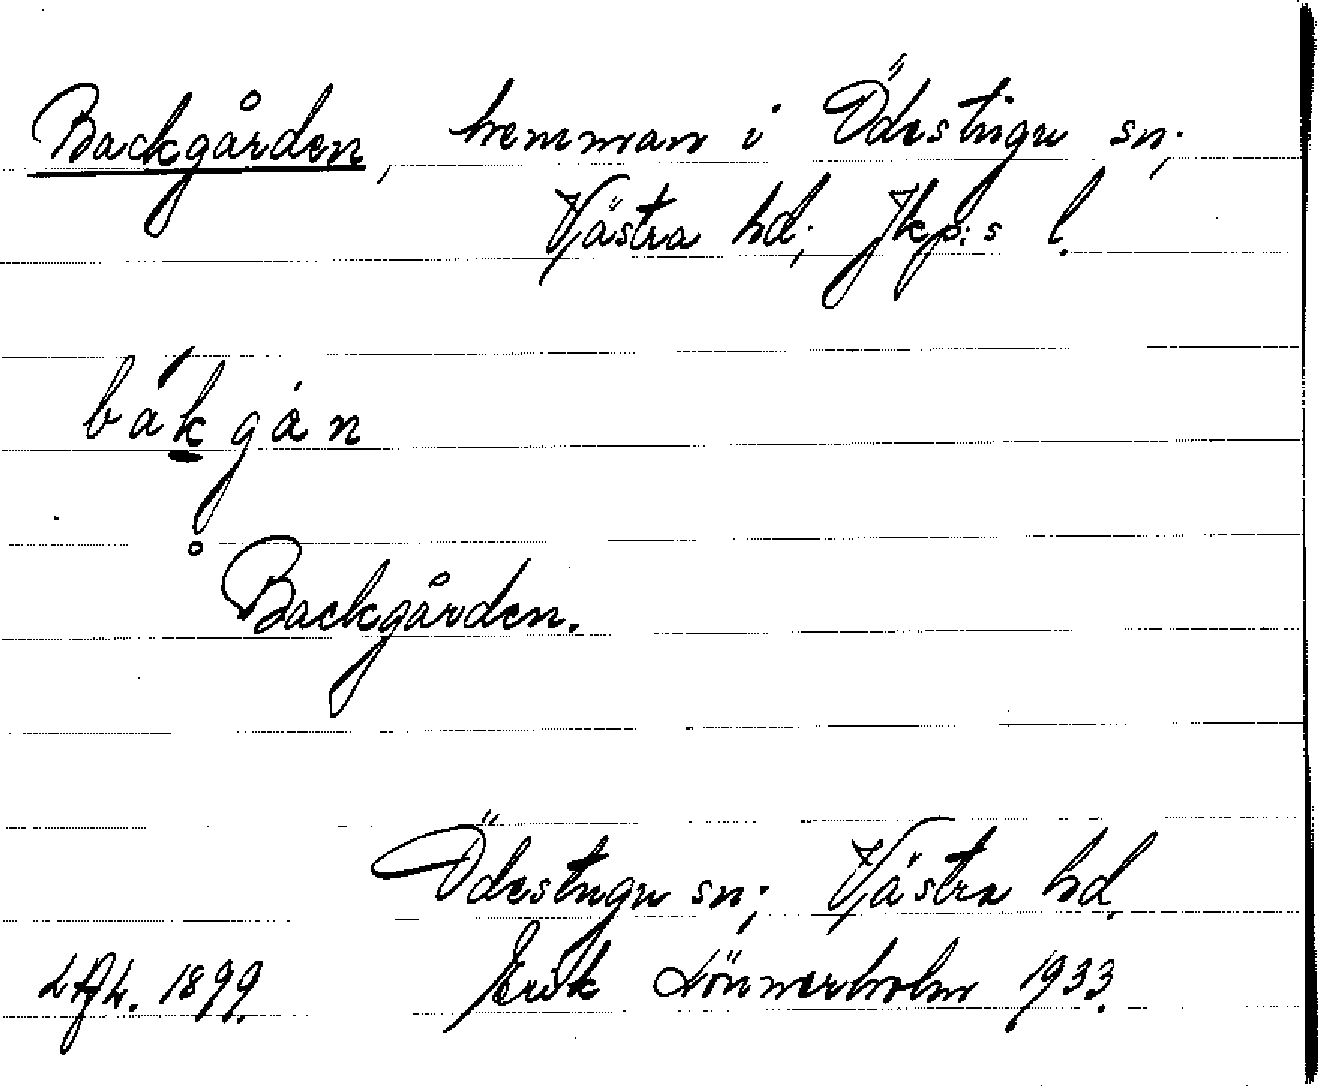 Backgården, hemman i Ödestugu sn;
Västra hd; Jkp:s l.
bákgȧn
Backgården.
Ödestugu sn; Västra hd.
1899. Erik Lönnerholm 1933.